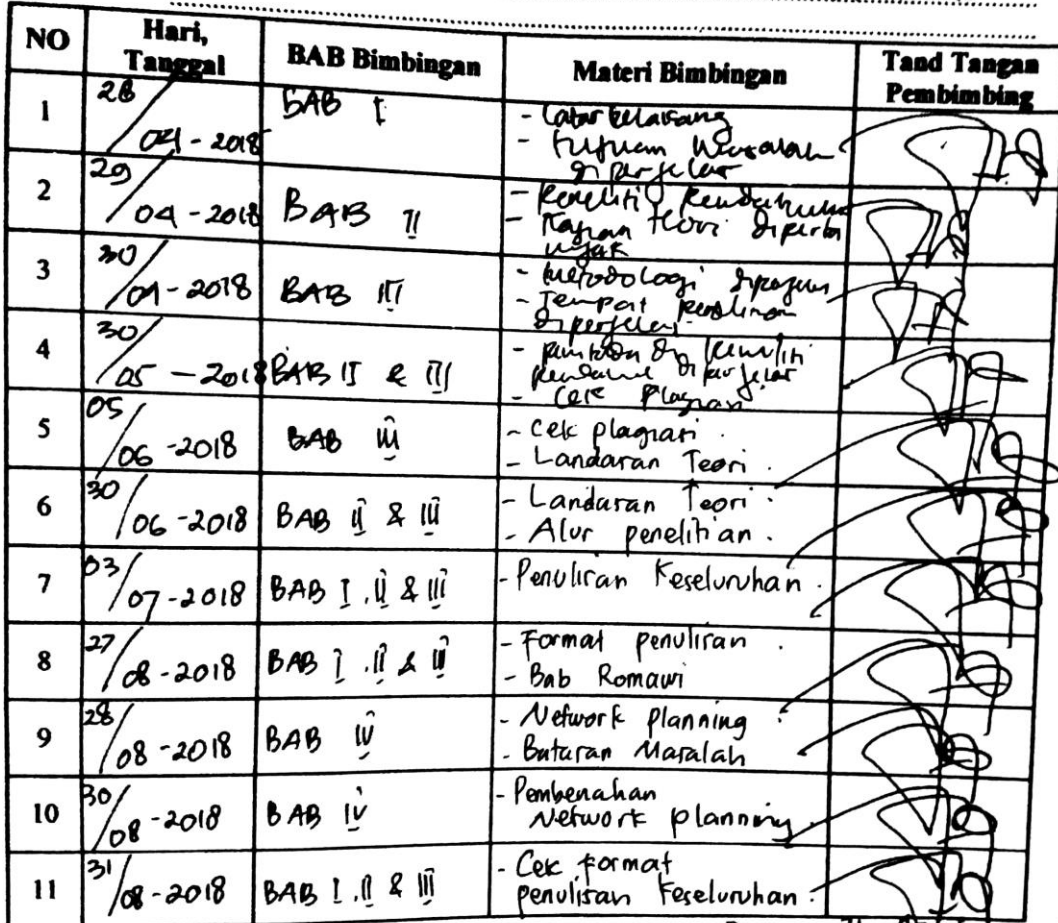 NO
Hari,
Tanggal
BAB Bimbingan
Materi Bimbingan
Tand Tangan
Pembimbing
1
28/04-2018
BAB I
- Latar belakang
- tujuan Masalah
diperjelas
2
29/04-2018
BAB II
- Peneliti Pendahulu
- Kajian teori diperba
nyak
3
30/04-2018
BAB III
- Metodologi diperjelas
- Tempat penelitian
diperjelas
4
30/05-2018
BAB II & III
diperjelas
- Cek Plagiasi
5
05/06-2018
BAB III
- Cek plagiasi.
- Landasan Teori.
6
30/06-2018
BAB II & III
- Landasan Teori.
- Alur penelitian.
7
03/07-2018
BAB I, II & III
- Penulisan Keseluruhan.
8
27/08-2018
BAB I, II & III
- Format penulisan.
- Bab Romawi
9
28/08-2018
BAB IV
- Network planning.
- Batasan Masalah
10
30/08-2018
BAB IV
- Pembenahan
Network planning.
11
31/08-2018
BAB I, II & III
- Cek format
penulisan Keseluruhan.